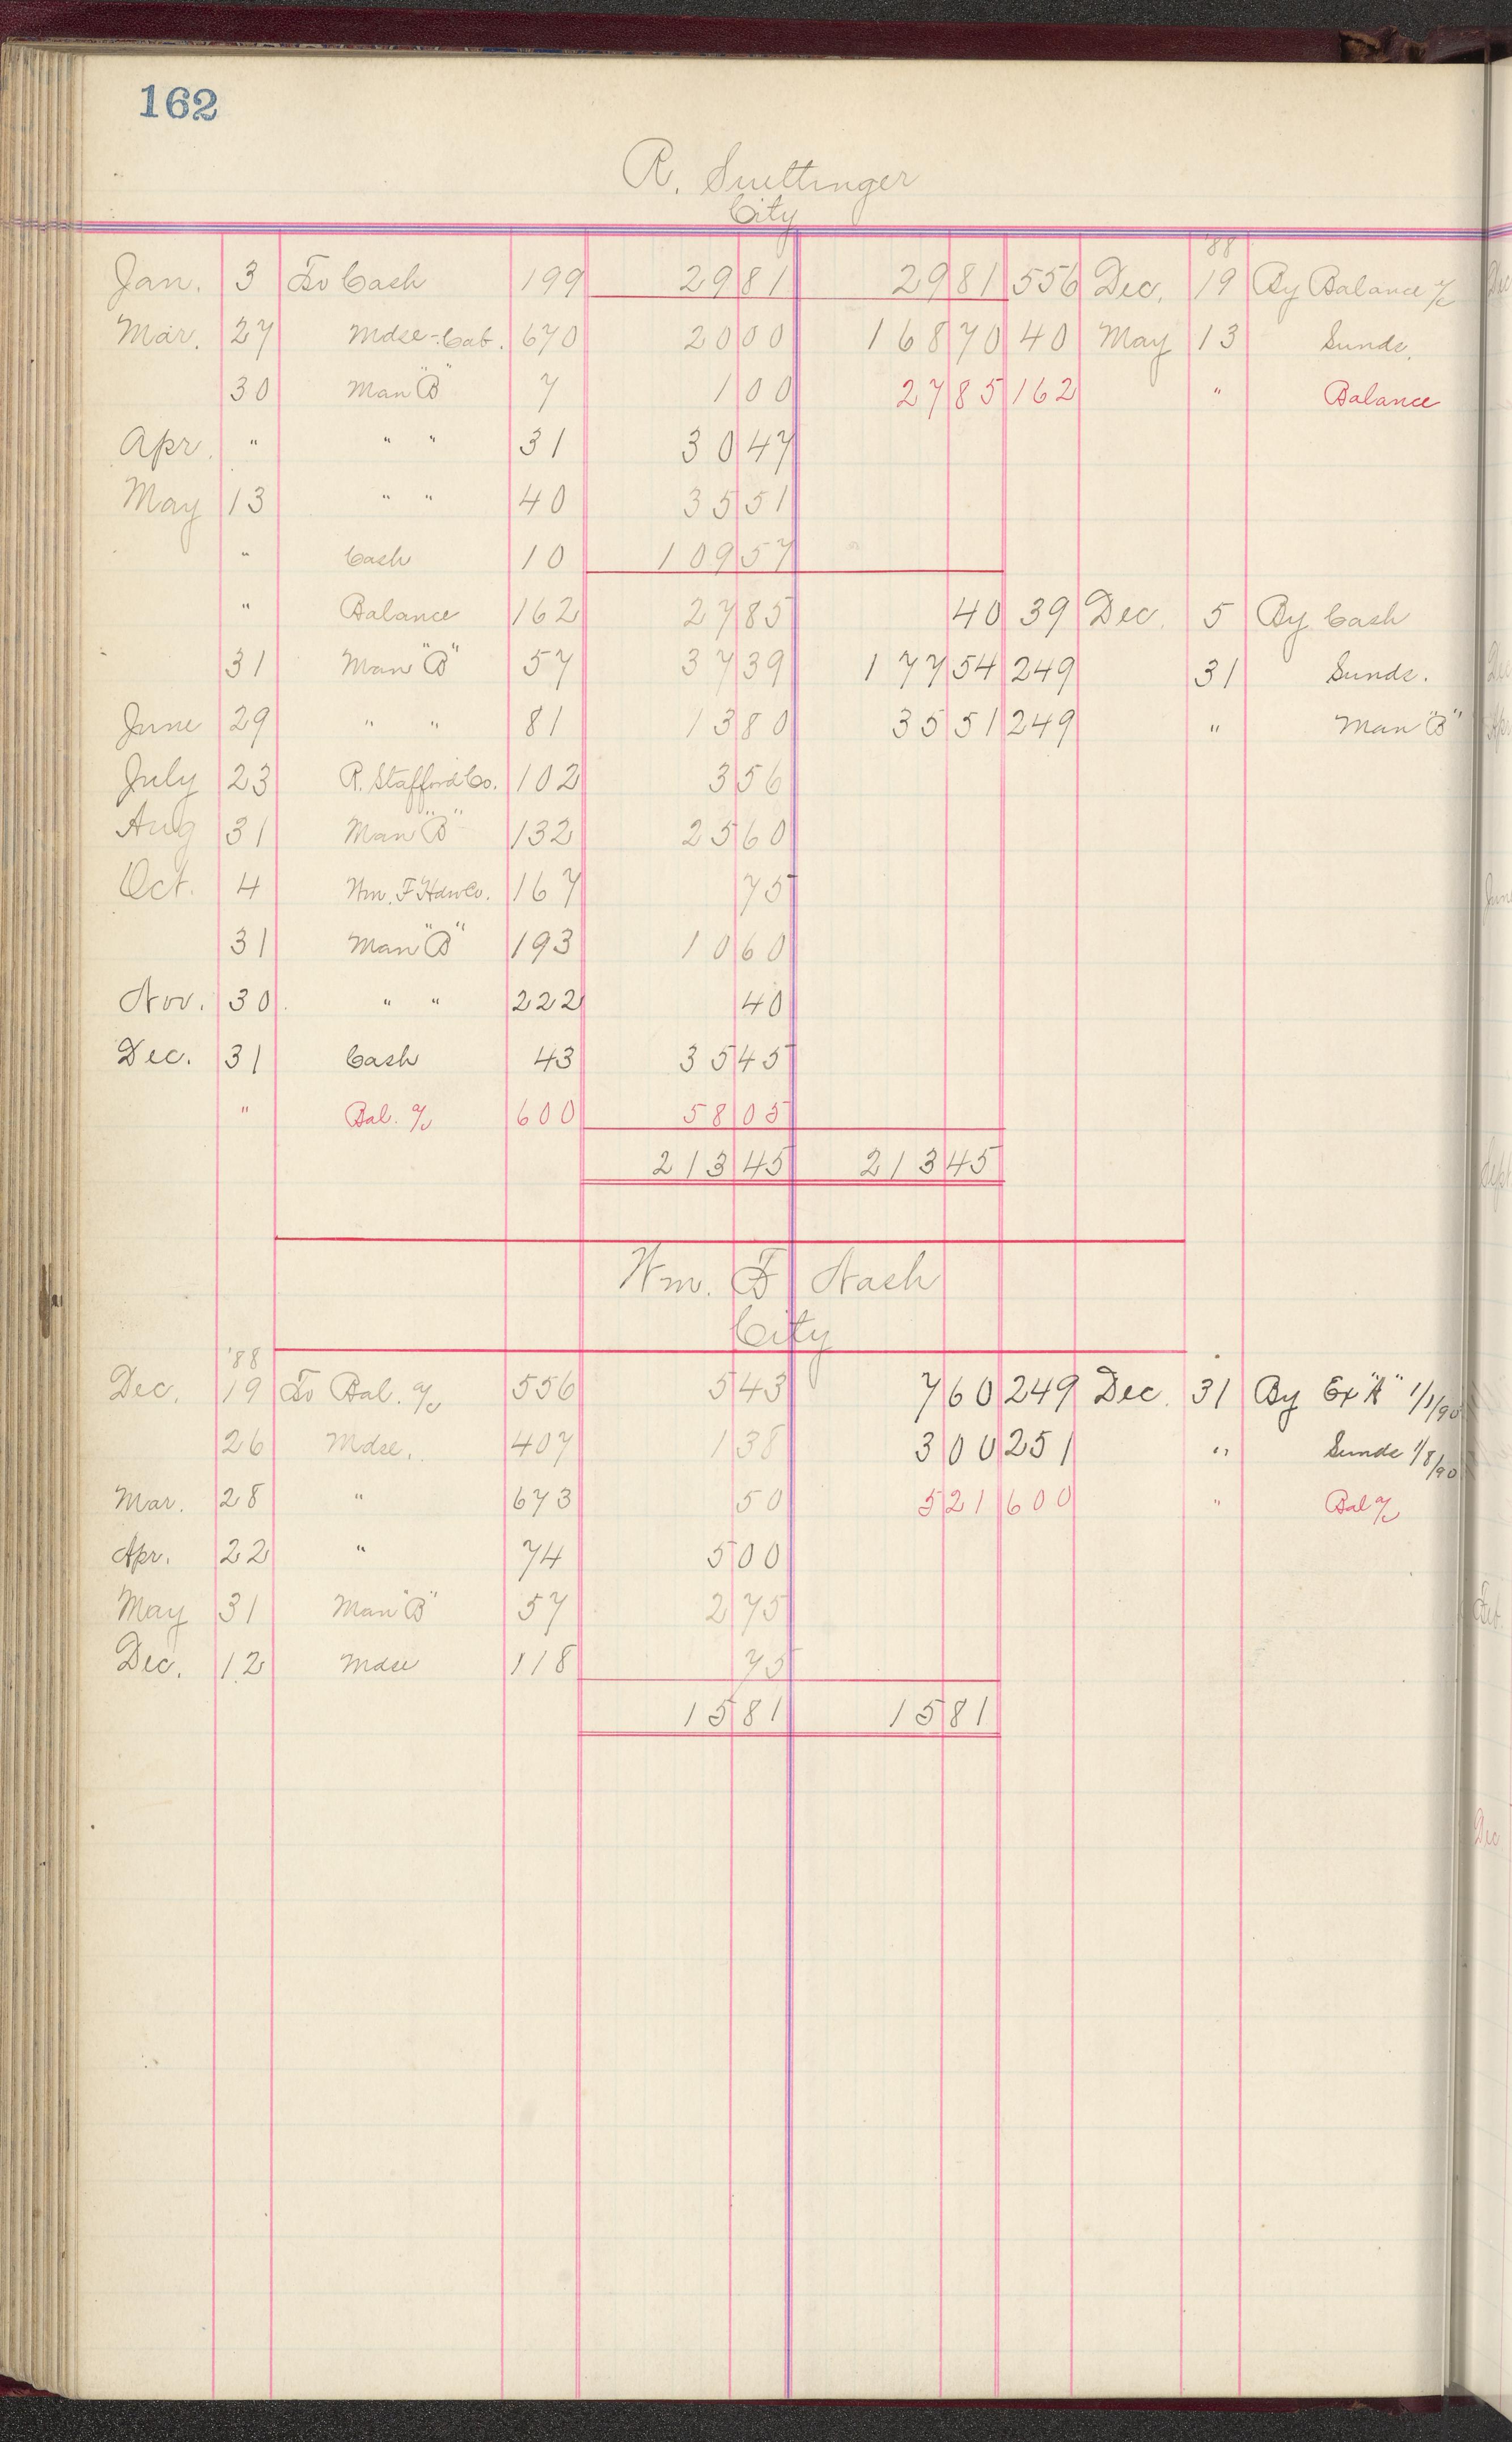 162
R. Suettinger
City
'88
Jan. 3 To Cash 199 29 81 29 81 556 Dec. 19 By Balance a/c
Mar. 27 Mdse-Cat. 670 20 00 168 70 40 May 13 Sunds.
30 Man "B" 7 1 00 27 85 162 " Balance
Apr. " " " 31 30 47
May 13 " " 40 35 51
" Cash 10 109 57
" Balance 162 27 85 40 39 Dec. 5 By Cash
31 Man "B" 57 37 39 177 54 249 31 Sunds.
June 29 " " 81 13 80 35 51 249 " Man "B"
July 23 R. Stafford Co. 102 3 56
Aug 31 Man "B" 132 25 60
Oct. 4 Wm. F Hdw Co. 167 75
31 Man "B" 193 10 60
Nov. 30 " " 222 40
Dec. 31 Cash 43 35 45
" Bal. a/c 600 58 05
213 45 213 45
Wm. F Nash
City
'88
Dec. 19 To Bal. a/c 556 5 43 7 60 249 Dec. 31 By Ex "A" 1/1/90
26 Mdse. 407 1 38 3 00 251 " Sunds 1/8/90
Mar. 28 " 673 50 5 21 600 " Bal a/c
Apr. 22 " 74 5 00
May 31 Man "B" 57 2 75
Dec. 12 Mdse 118 75
15 81 15 81